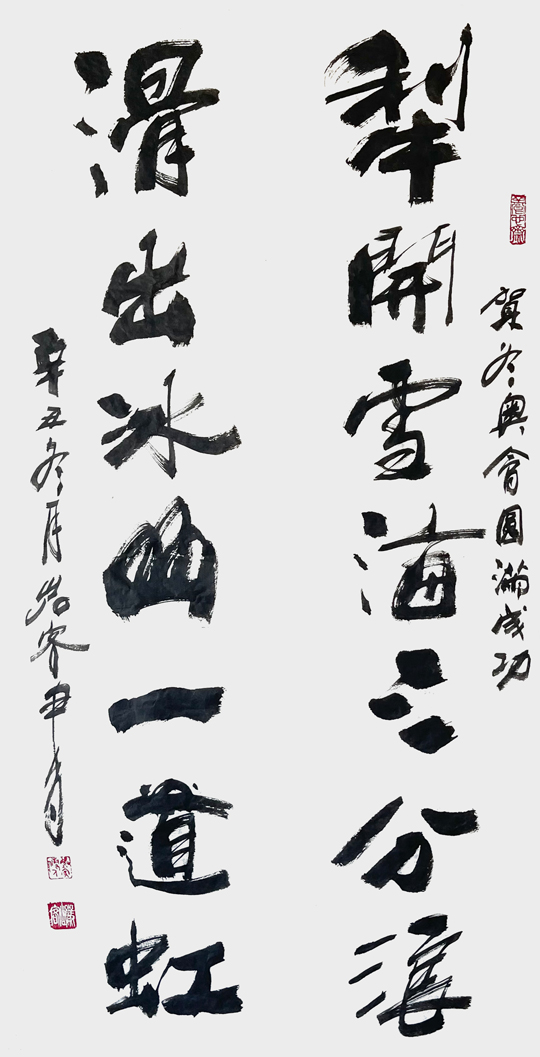 賀冬奥會圓滿成功
犁開雪海三分浪
滑出冰幽一道虹
辛丑冬月岩客尹青